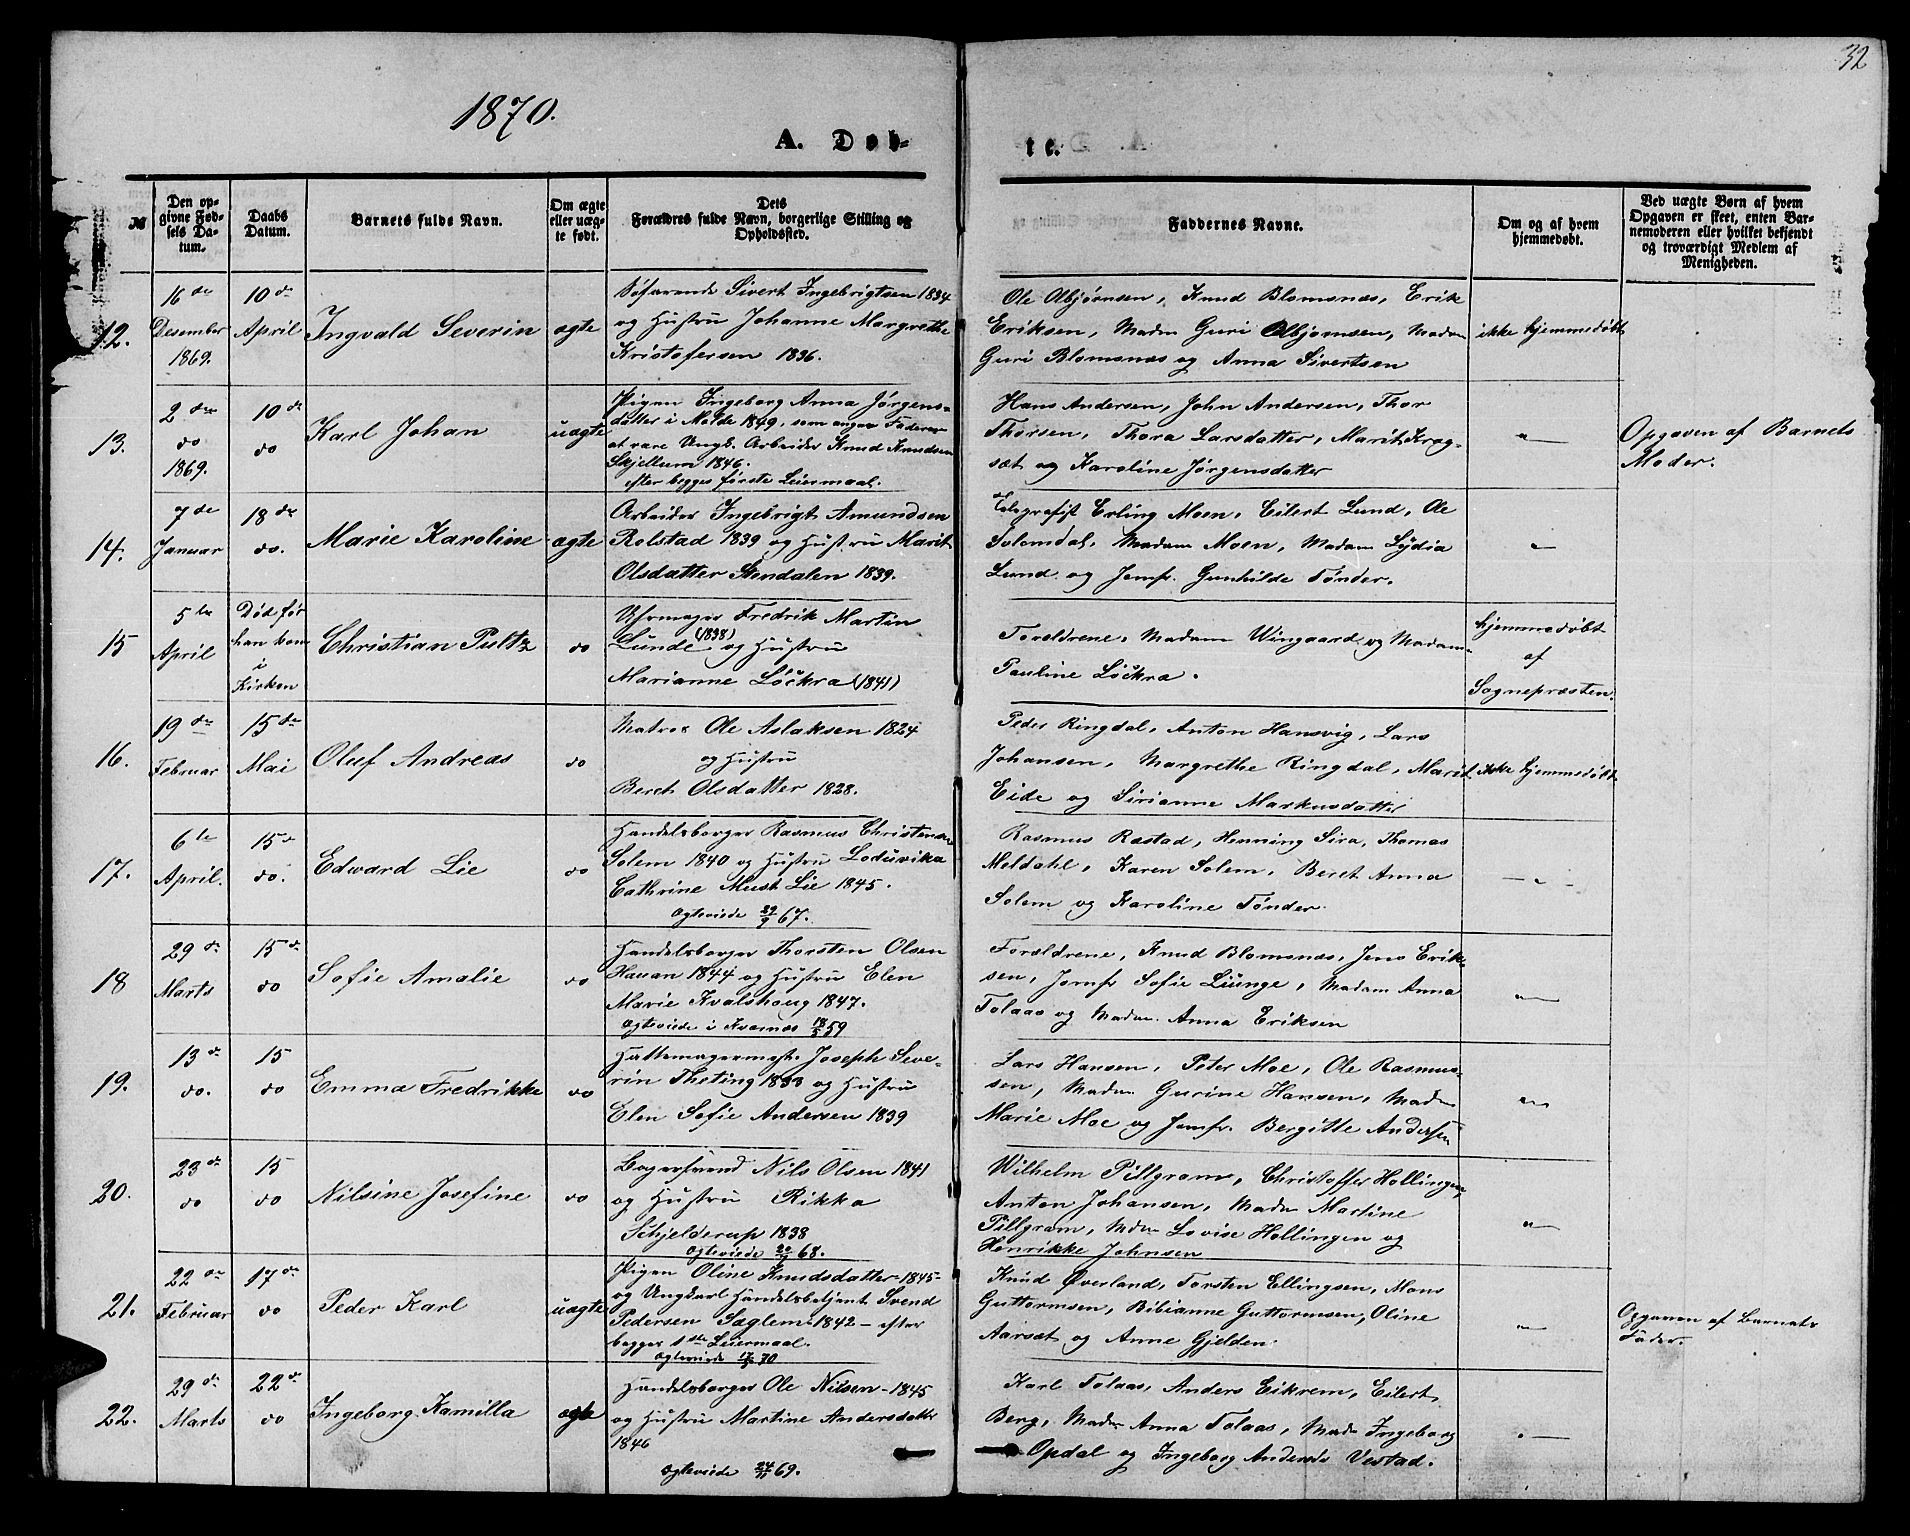 32
1870.
A. Døb-
te.
№
Den op-
givne Fød-
sels Da-
tum.
Daabs
Datum.
Barnets fulde Navn.
Om ægte
eller uæg-
te født.
Dets
Forældres fulde Navn, borgerlige Stilling og
Opholdssted.
Faddernes Navne.
Om og af hvem
hjemmedøbt.
Ved uægte Børn af hvem
Opgaven er skeet, enten Bar-
nemoderen eller hvilket bekjendt
og troværdigt Medlem af
Menigheden.
12.
16de
Desember
1869.
10de
April
Ingvald Severin
ægte
Søfarende Sivert Ingebrigtsen 1834
og Hustru Johanne Margrethe
Kristofersen 1836.
Ole Abjørnsen, Knud Blomsnæs, Erik
Eriksen, Madm Guri Abjørnsen, Madm
Guri Blomsnæs og Anna Sivertsen
ikke hjemmedøbt
13.
2den
do
1869.
10de
do
Karl Johan
uægte
Pigen Ingeborg Anna Jørgens-
datter i Molde 1849, som angav Faderen
at være Ungk. Arbeider Knud Knudsen
Skjellum 1846.
efter begges første Leiermaal.
Hans Andersen, John Andersen, Thor
Thorsen, Thora Larsdatter, Marit Krog-
sæt og Karoline Jørgensdatter
"
Opgaven af Barnets
Moder.
14.
7de
Januar
18de
do.
Marie Karoline
ægte
Arbeider Ingebrigt Amundsen
Rolstad 1839 og Hustru Marit
Olsdatter Stendalen 1839.
Telegrafist Erling Moen, Eilert Lund, Ole
Solemdal, Madam Moen, Madam Lydia
Lund og Jomfr. Gunhilde Tønder.
"
15
5te
April
Død før
han kom
i
Kirken
Christian Pultz
do
Uhrmager Fredrik Martin
Lunde (1838) og Hustru
Marianne Løckra (1841)
Forældrene, Madam Wingaard og Madam
Pauline Løckra.
hjemmedøbt
af
Sognepræsten.
16.
19de
Februar
15de
Mai
Oluf Andreas
do
Matros Ole Aslaksen 1824
og Hustru
Beret Olsdatter 1828.
Peder Ringdal, Anton Hansvig, Lars
Johansen, Margrethe Ringdal, Marit
Eide og Sirianne Markusdatter
ikke hjemmedøbt
17.
6te
April.
15de
do.
Edward Lie
do
Handelsborger Rasmus Christensen
Solem 1840 og Hustru Loduvika
Cathrine Must Lie 1845.
Ægteviede 29/9 67.
Rasmus Røstad, Henning Sira, Thomas
Meldahl, Karen Solem, Beret Anna
Solem og Karoline Tønder.
"
18
29de
Marts
15de
do
Sofie Amalie
do
Handelsborger Thorsten Olsen
Havan 1844 og Hustru Elen
Marie Kvalshoug 1847.
Ægteviede i Kvernæs 18/5 59
Forældrene, Knud Blomsnæs, Jens Erik-
sen, Jomfr Sofie Liunge, Madam Anna
Tolaas og Madm. Anna Eriksen
"
19.
13de
do.
15
do
Emma Fredrikke
do
Hattemagermest. Joseph Seve-
rin Theting 1833 og Hustru
Elen Sofie Andersen 1839
Lars Hansen, Peter Moe, Ole Rasmus-
sen, Madm Gurine Hansen, Madm
Marie Moe og Jomfr. Bergitte Andersen
"
20.
23de
do
15
do
Nilsine Josefine
do
Bogersvend Nils Olsen 1841
og Hustru Rikka
Schjelderup 1838
Ægteviede 20/4 68.
Wilhelm Pillgram, Christoffer Hollingen,
Anton Johansen, Madm Martine
Pillgram, Mdm Lovise Hollingen og
Henrikke Johnsen
"
21.
22de
Februar
17de
do
Peder Karl
uægte
Pigen Oline Knudsdatter-1845-
og Ungkarl Handelsbetjent Svend
Pedersen Sæglem 1842 - efter
begges 1ste Leiermaal.
Ægteviede 17/5 70
Knud Øverland, Torsten Ellingsen, Mons
Guttormsen, Bibianne Guttormsen, Oline
Aarsæt og Anne Gjelden.
"
Opgaven af Barnets
Fader.
22.
29de
Marts
22de
do
Ingeborg Kamilla
ægte
Handelsborger Ole Nilsen-1845
og Hustru Martine Andersdatter
1846
Ægteviede 24/11 69.
Karl Tolaas, Anders Eikrem, Eilert
Berg, Madm Anna Tolaas, Madm Ingeborg
Opdal og Ingeborg Andersdr Vestad.
"